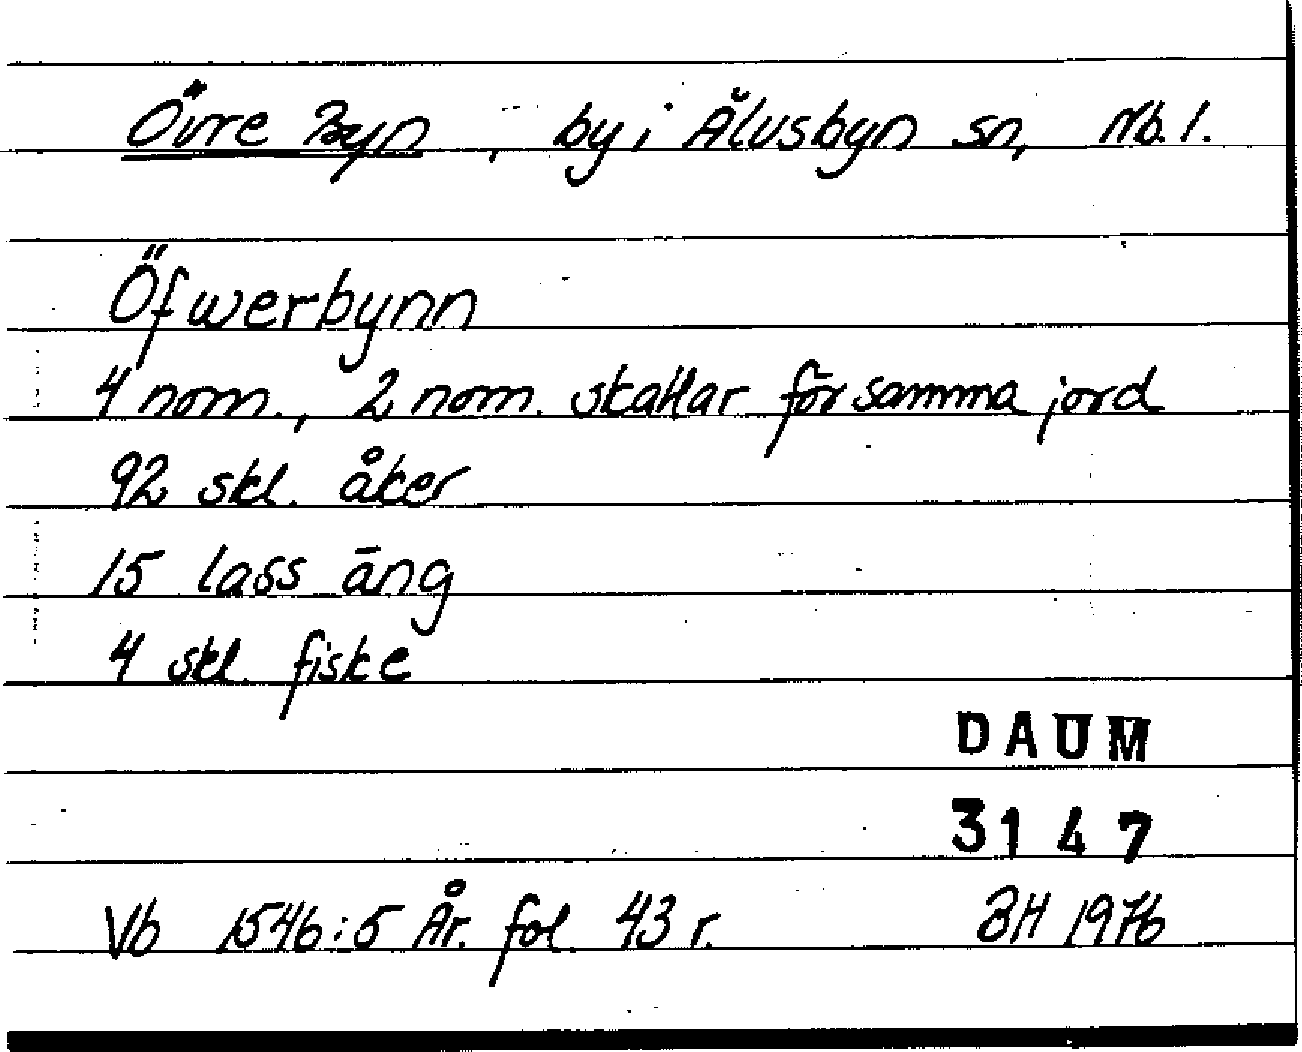 Övre Byn, by i Älvsbyn sn, Nb. l.
Öfwerbynn
4 nom., 2 nom. skattar för samma jord
92 skl. åker
15 lass äng
4 skl. fiske
DAUM
3147
Vb 1546:5 År. fol. 43 r. BH 1976